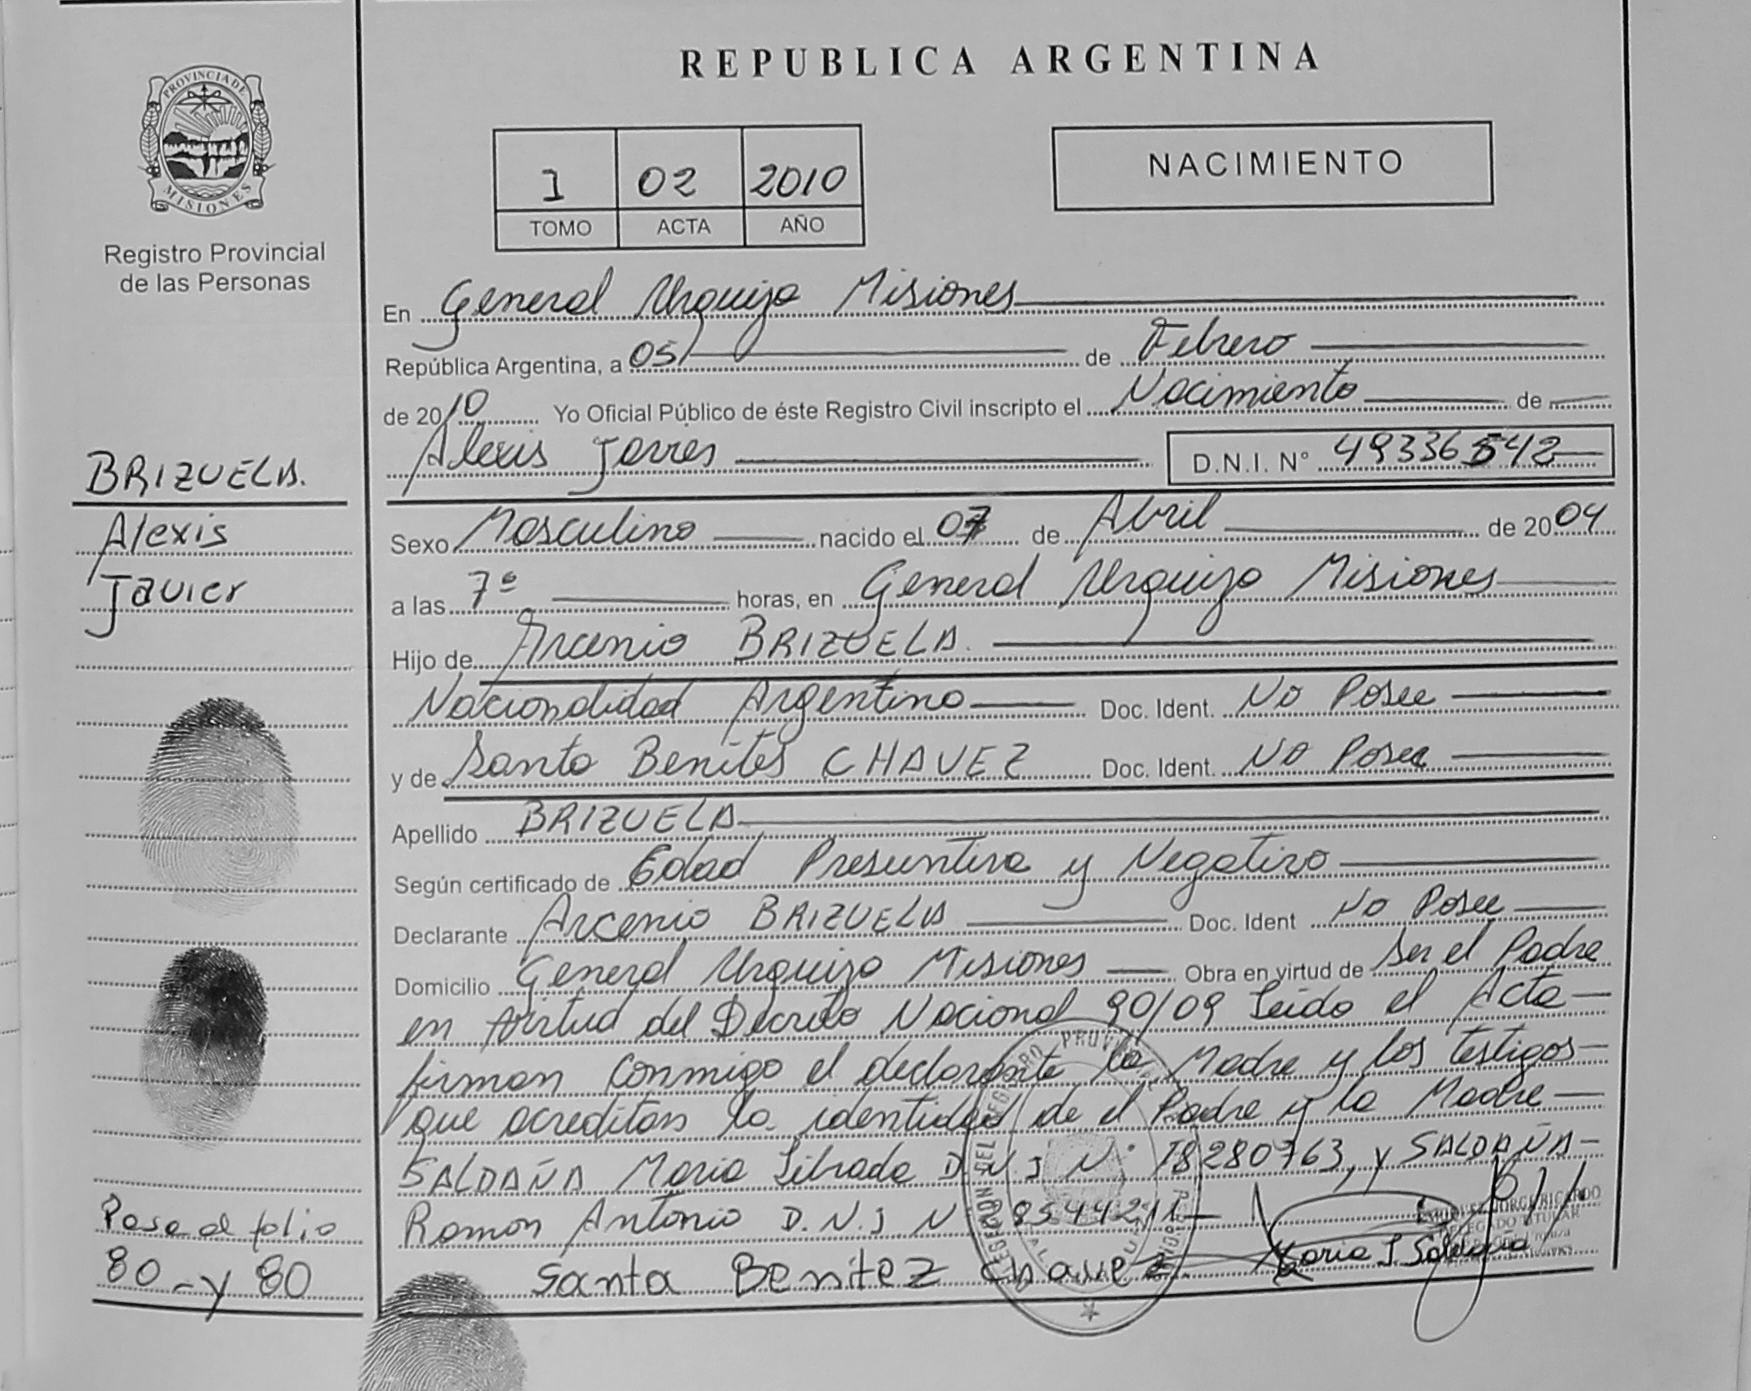 PROVINCIA DE
MISIONES
Registro Provincial
de las Personas
REPUBLICA ARGENTINA
1 02 2010
TOMO ACTA AÑO
NACIMIENTO
En General Urquiza Misiones
República Argentina, a 05 de Febrero
de 2010 Yo Oficial Público de éste Registro Civil inscripto el Nacimiento de
Alexis Javier D.N.I. N° 49336542
Sexo Masculino nacido el 07 de Abril de 2004
a las 7º horas, en General Urquiza Misiones
Hijo de Arcenio BRIZUELA.
Nacionalidad Argentina Doc. Ident. No Posee
y de Santa Benites CHAVEZ Doc. Ident. No Posee
Apellido BRIZUELA
Según certificado de Edad Presuntiva y Negativo
Declarante Arcenio BRIZUELA Doc. Ident No Posee
Domicilio General Urquiza Misiones Obra en virtud de Ser el Padre
en virtud del Decreto Nacional 90/09 Leido el Acta
firman conmigo el declarante la Madre y los testigos
que acreditan la identidad de el Padre y la Madre
SALDAÑA Maria Librada D.N.I N° 18280763, y SALDAÑA
Ramon Antonio D.N.I N 8544211
Santa Benitez Chavez
BRIZUELA.
Alexis
Javier
Pasa al folio
80 - y 80